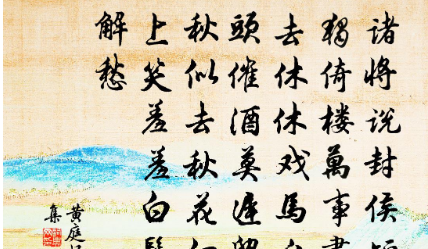 诸将说封侯
独倚楼万事
去休休戏马
头催酒莫迟
秋似去秋花
上笑羞羞白
解愁
黄庭
集